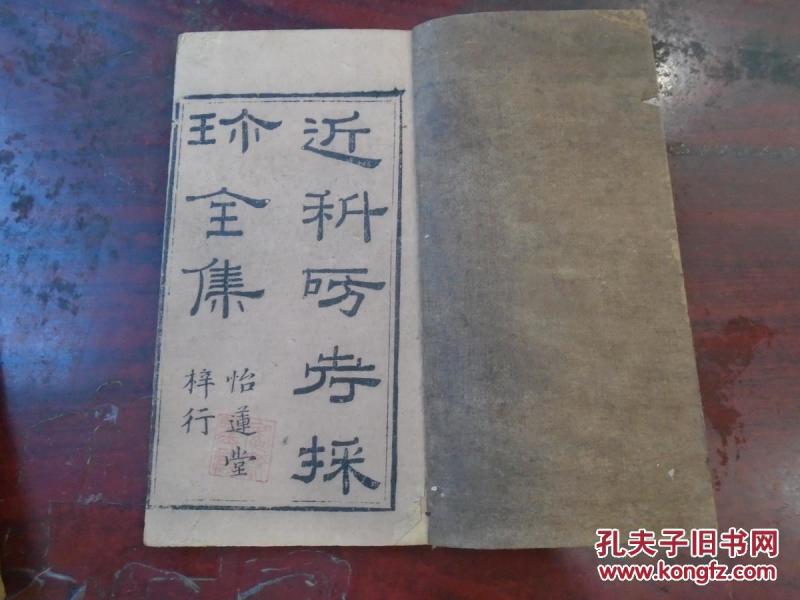 近科房考採
珎全集
怡蓮堂
梓行
孔夫子旧书网
www.kongfz.com